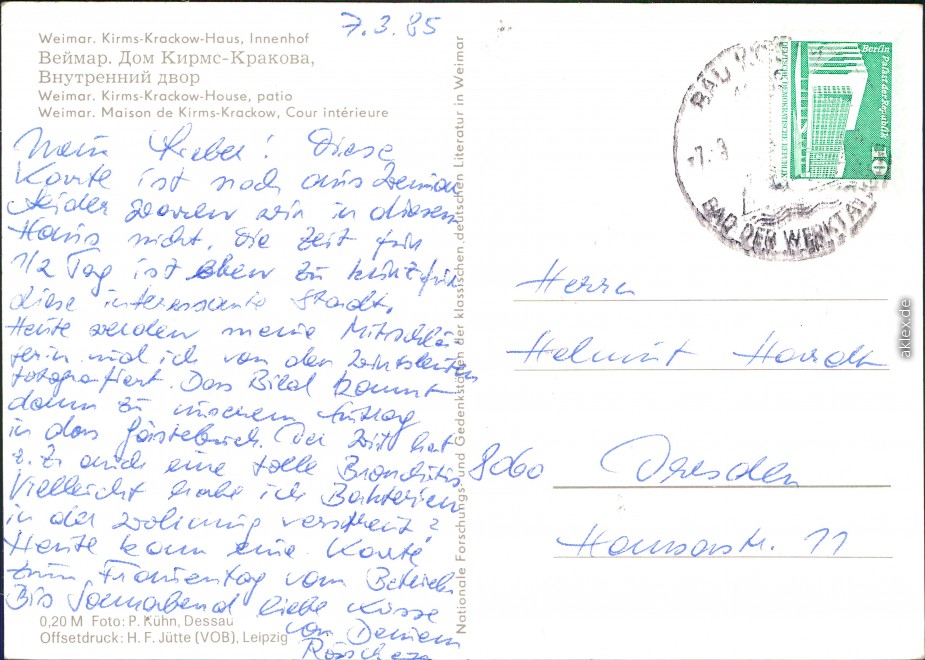 7.3.85
Weimar. Kirms-Krackow-Haus, Innenhof
Веймар. Дом Кирмс-Кракова,
Внутренний двор
Weimar. Kirms-Krackow-House, patio
Weimar. Maison de Kirms-Krackow, Cour intérieure
Mein Lieber! Diese
Karte ist noch aus Weimar
Leider waren wir in diesem
Haus nicht. Die Zeit für
1/2 Tag ist eben zu kurz für
diese interessante Stadt.
Heute werden meine Mitschlä-
ferin und ich von den Wirtsleuten
fotografiert. Das Bild kommt
dann zu unserem
in das Gästebuch. Die Wirtin hat
z. Zt. auch eine tolle Bronchitis
Vielleicht habe ich Bakterien
in der Wohnung verstreut?
Heute kam eine Karte
zum Frauentag vom Betrieb.
Bis Sonnabend liebe Küsse
von Deinem
Röschen
0,20 M Foto: P. Kühn, Dessau
Offsetdruck: H. F. Jütte (VOB), Leipzig
Nationale Forschungs- und Gedenkstätten der klassischen deutschen Literatur in Weimar
BAD
-7.-3
BAD DER WERKTÄTIGEN
Berlin
Palast der Republik
DEUTSCHE DEMOKRATISCHE REPUBLIK
10
Herrn
Helmut
8060 Dresden
Hansastr. 11
aklex.de